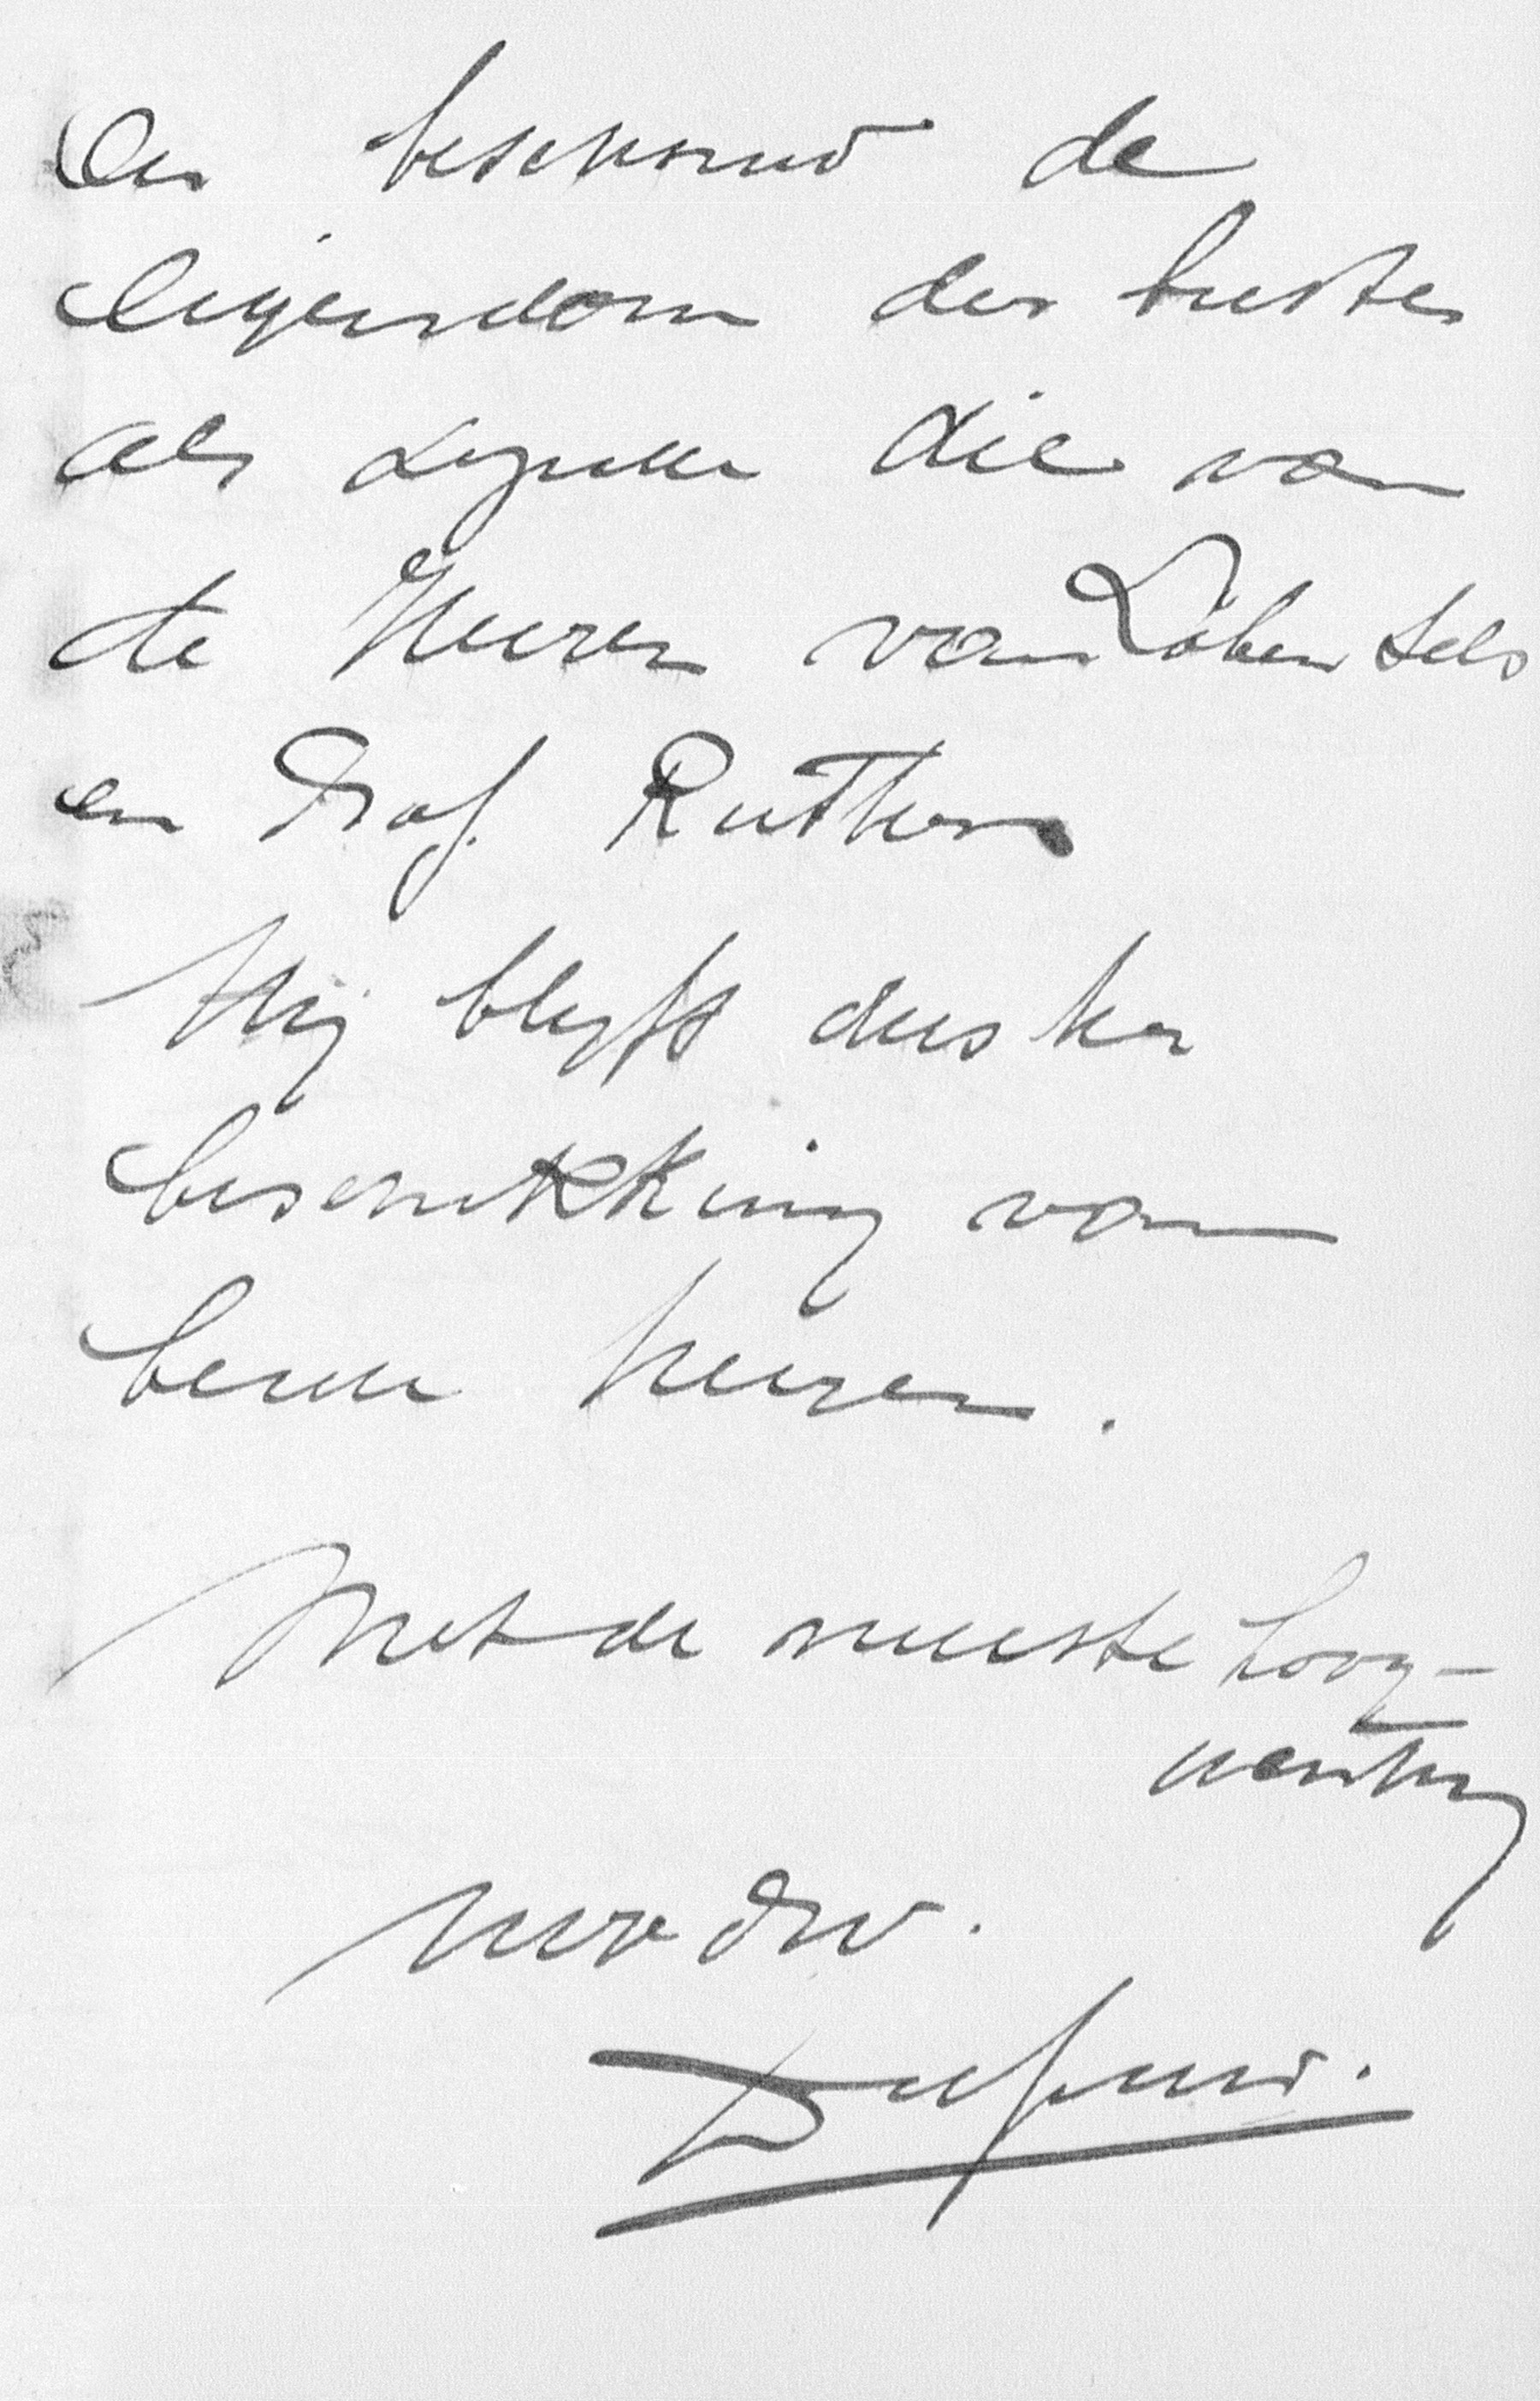 en beschouw de
eigendom der buste
als zijnde die van
de Heeren van Löben Sels
en Prof. Rutgers
Hij blyft dus ter
beschikking van
beide heeren.
Met de meeste hoog-
achting
Uw dw.